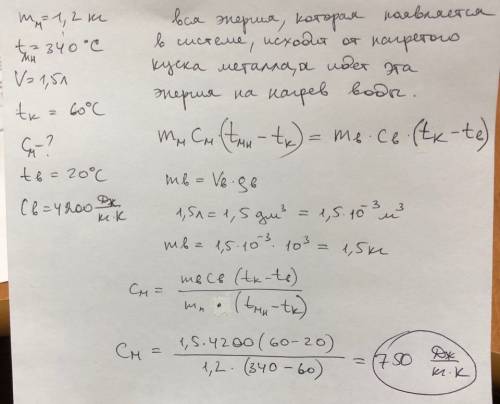 mм = 1,2 кг
tмн = 340 °C
V = 1,5л
tк = 60°C
Cм - ?
tв = 20°C
Cв = 4200 Дж/кг·К
вся энергия, которая появляется
в системе, исходит от нагретого
куска металла, а идет эта
энергия на нагрев воды.
mм Cм (tмн - tк) = mв · Cв · (tк - tв)
mв = Vв · ρв
1,5л = 1,5 дм³ = 1,5·10⁻³ м³
mв = 1,5·10⁻³ · 10³ = 1,5 кг
Cм = mв Cв (tк - tв) / mм · (tмн - tк)
Cм = 1,5·4200 (60 - 20) / 1,2 · (340 - 60) = 750 Дж/кг·К